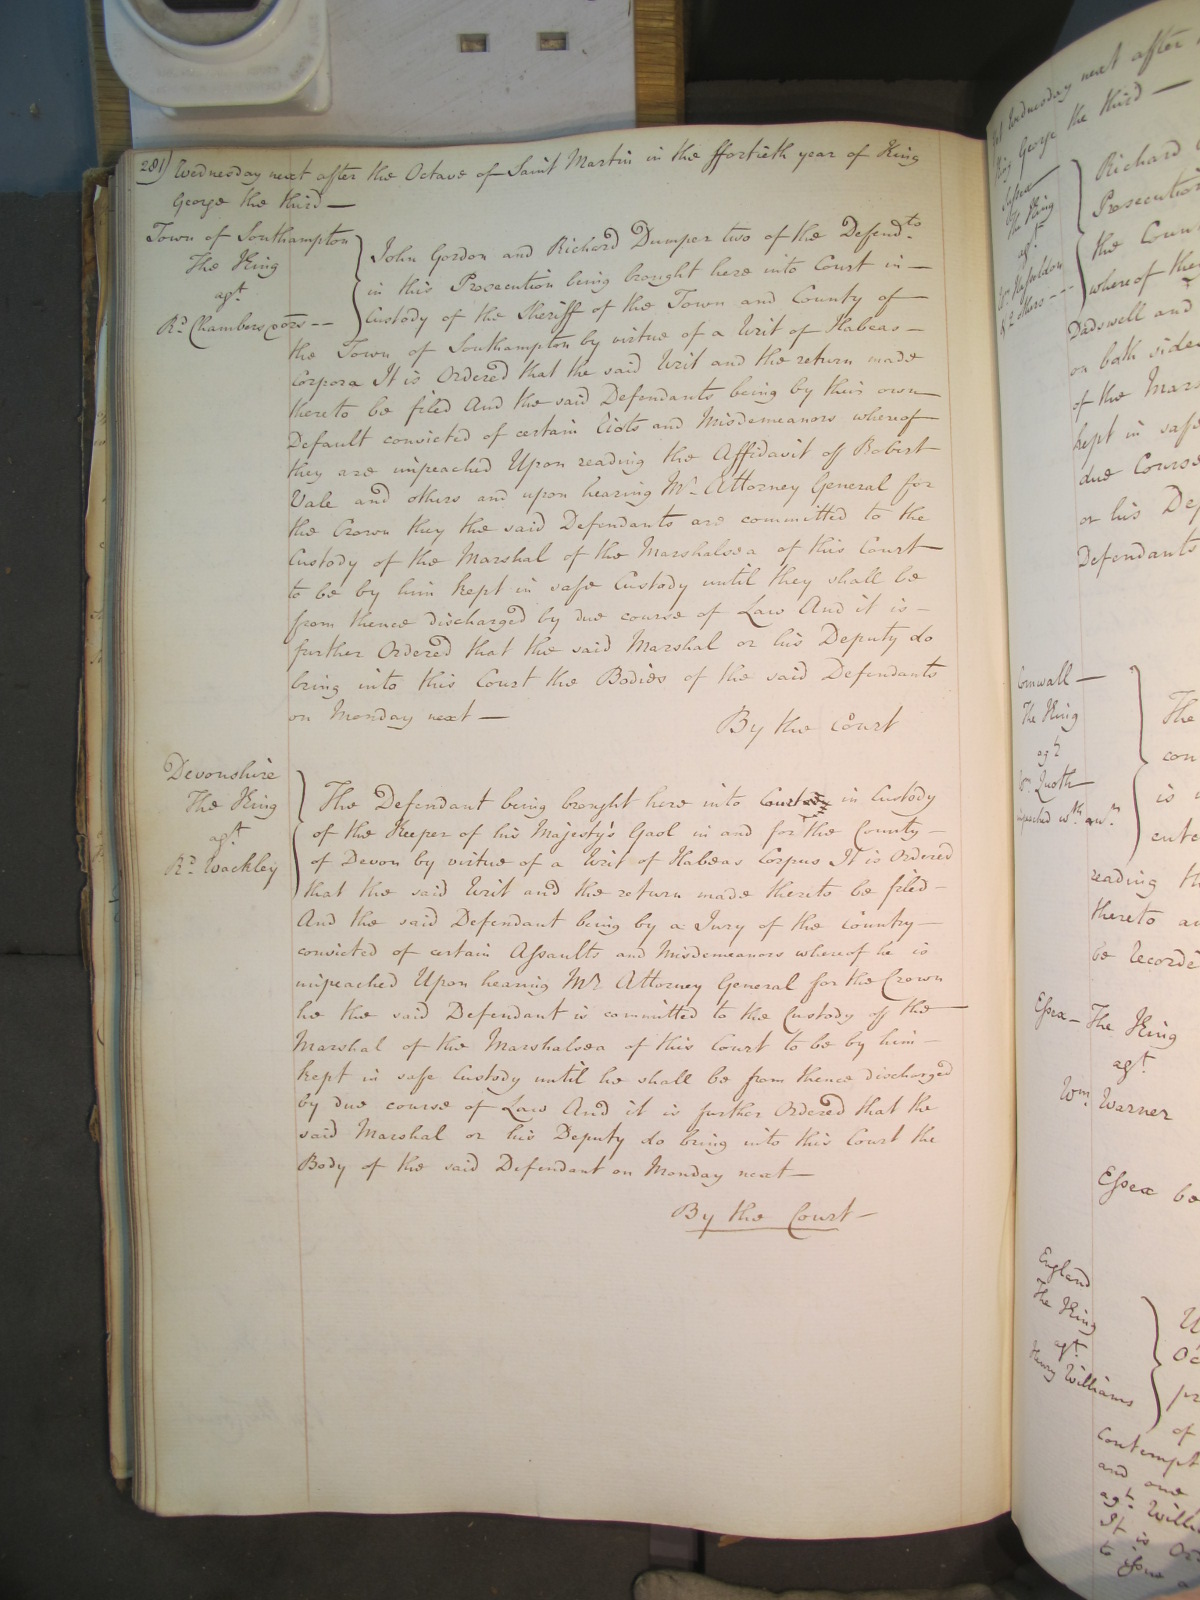 281) Wednesday next after the Octave of Saint Martin in the ffortieth year of King
George the third —
Town of Southampton
The King
agt
Rd. Chambers & ors --
John Gordon and Richard Dumper two of the Defendts
in this Prosecution being brought here into Court in —
Custody of the Sheriff of the Town and County of
the Town of Southampton by virtue of a Writ of Habeas —
Corpora It is Ordered that the said Writ and the return made
thereto be filed And the said Defendants being by their own
Default convicted of certain Riots and Misdemeanors whereof
they are impeached Upon reading the Affidavit of Robert
Vale and others and upon hearing Mr. Attorney General for
the Crown they the said Defendants are committed to the
Custody of the Marshal of the Marshalsea of this Court
to be by him kept in safe Custody until they shall be
from thence discharged by due course of Law And it is —
further Ordered that the said Marshal or his Deputy do
bring into this Court the Bodies of the said Defendants
on Monday next —
By the court
Devonshire
The King
agt
Rd. Wackley
The Defendant being brought here into Court in Custody
of the Keeper of his Majesty's Gaol in and for the County —
of Devon by virtue of a Writ of Habeas Corpus It is Ordered
that the said Writ and the return made thereto be filed —
And the said Defendant being by a Jury of the country —
convicted of certain Assaults and Misdemeanors whereof he is
impeached Upon hearing Mr. Attorney General for the Crown
he the said Defendant is committed to the Custody of the
Marshal of the Marshalsea of this Court to be by him —
kept in safe Custody until he shall be from thence discharged
by due course of Law And it is further Ordered that the
said Marshal or his Deputy do bring into this Court the
Body of the said Defendant on Monday next —
By the Court —
Wednesday next after
King George the third —
The King
agt
Richard
Prosecution
the Coun
whereof the
Dadswell and
on both side
of the Mars
kept in safe
due Course
or his Dep
Defendants
Cornwall —
The King
agt
The
con
is
ente
reading th
thereto a
be Recorde
Essex — The King
agt.
Wm. Warner
Essex be
England
The King
agt.
Henry Williams
of
Contempt
and one
agt. Willi
It is Or
to issue a